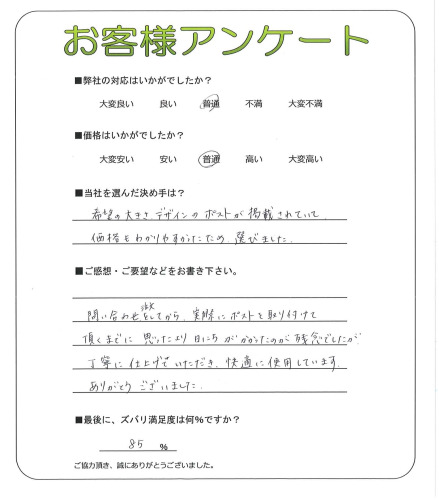 お客様アンケート
■弊社の対応はいかがでしたか？
大変良い 良い 普通 不満 大変不満
■価格はいかがでしたか？
大変安い 安い 普通 高い 大変高い
■当社を選んだ決め手は？
希望の大きさ デザインの ポストが 掲載されていて、
価格もわかりやすかったため、選びました。
■ご感想・ご要望などをお書き下さい。
注文
問い合わせをしてから、実際にポストを取り付けて
頂くまでに 思ったより 日にちがかかったのが 残念でしたが
丁寧に 仕上げて いただき、快適に使用しています。
ありがとう ございました。
■最後に、ズバリ満足度は何％ですか？
85 ％
ご協力頂き、誠にありがとうございました。